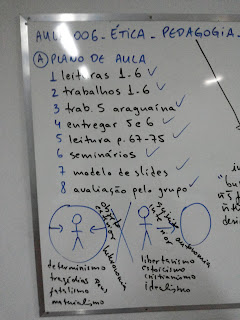 AULA 006 - ÉTICA - PEDAGOGIA -
A PLANO DE AULA
1 leituras 1-6 ✓
2 trabalhos 1-6 ✓
3 trab. 5 araguaína ✓
4 entregar 5 e 6 ✓
5 leitura p. 67-75 ✓
6 seminários ✓
7 modelo de slides ✓
8 avaliação pelo grupo ✓
objeto
exterior
heteronomia
sujeito
interior
autonomia
determinismo
tragédias
fatalismo
materialismo
libertarismo
estoicismo
cristianismo
idealismo